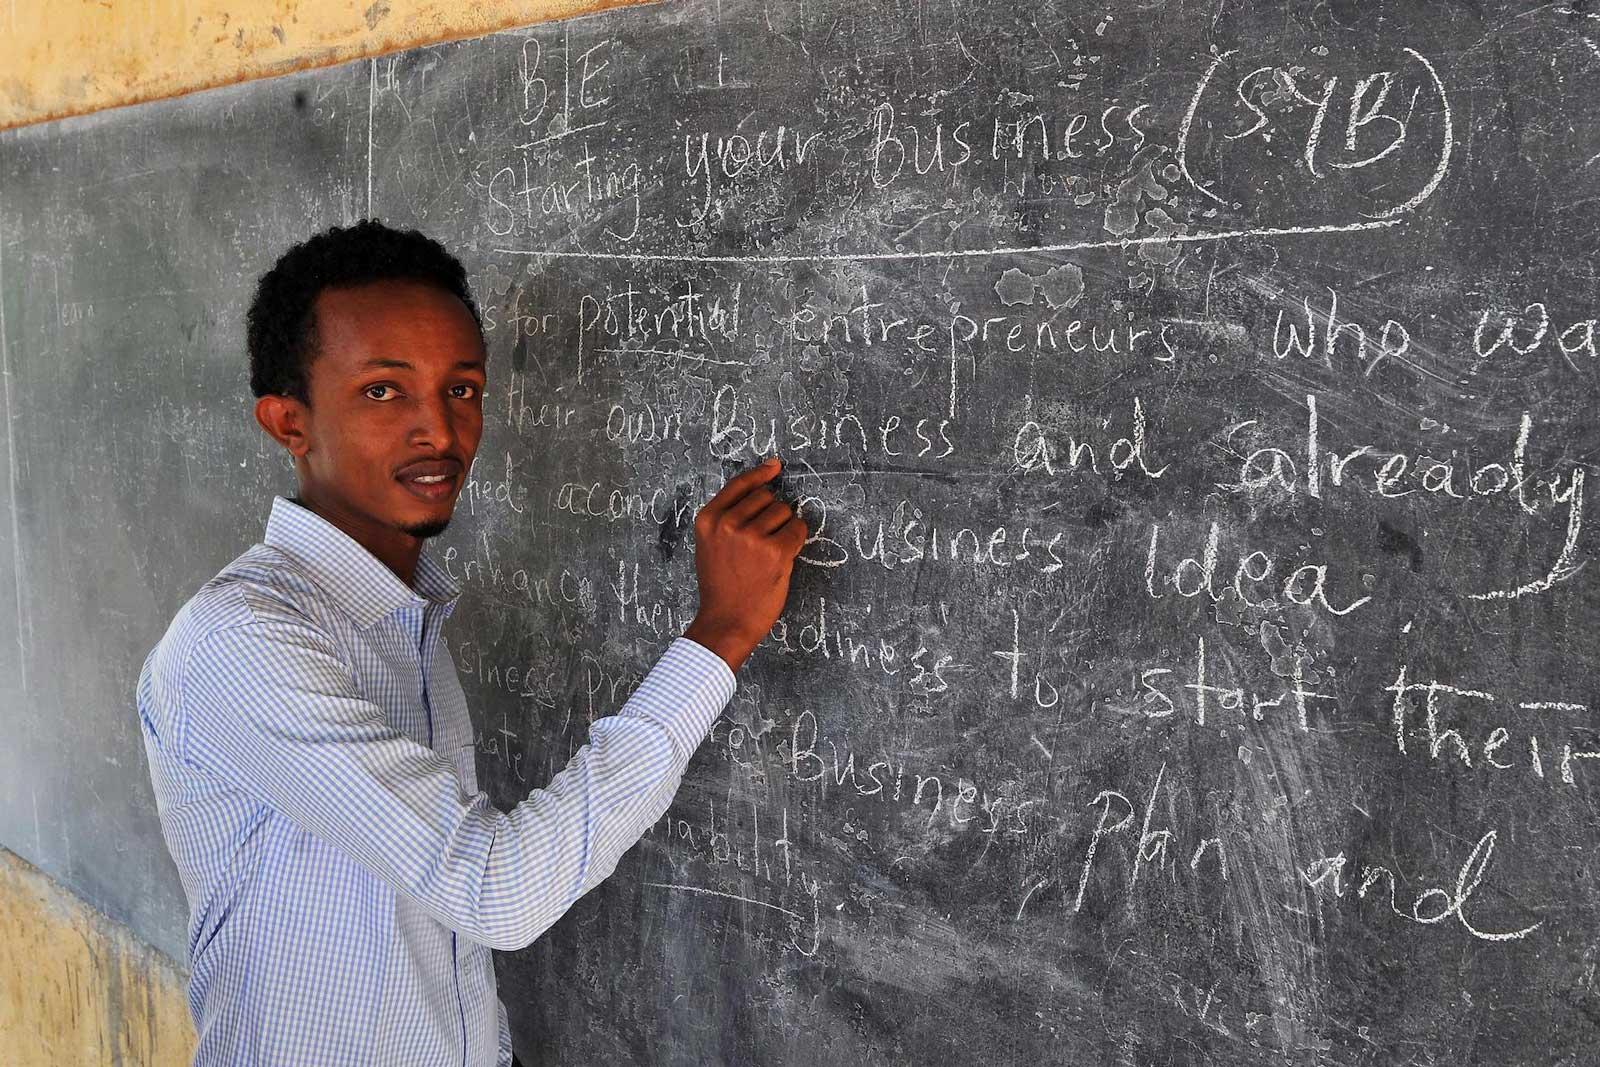 BIE
Starting your Business (SYB)
s for potential entrepreneurs who wa
their own Business and already
ped a concr Business Idea
enhance their adiness to start their
siness pr
uate re Business plan and
iability.
learn